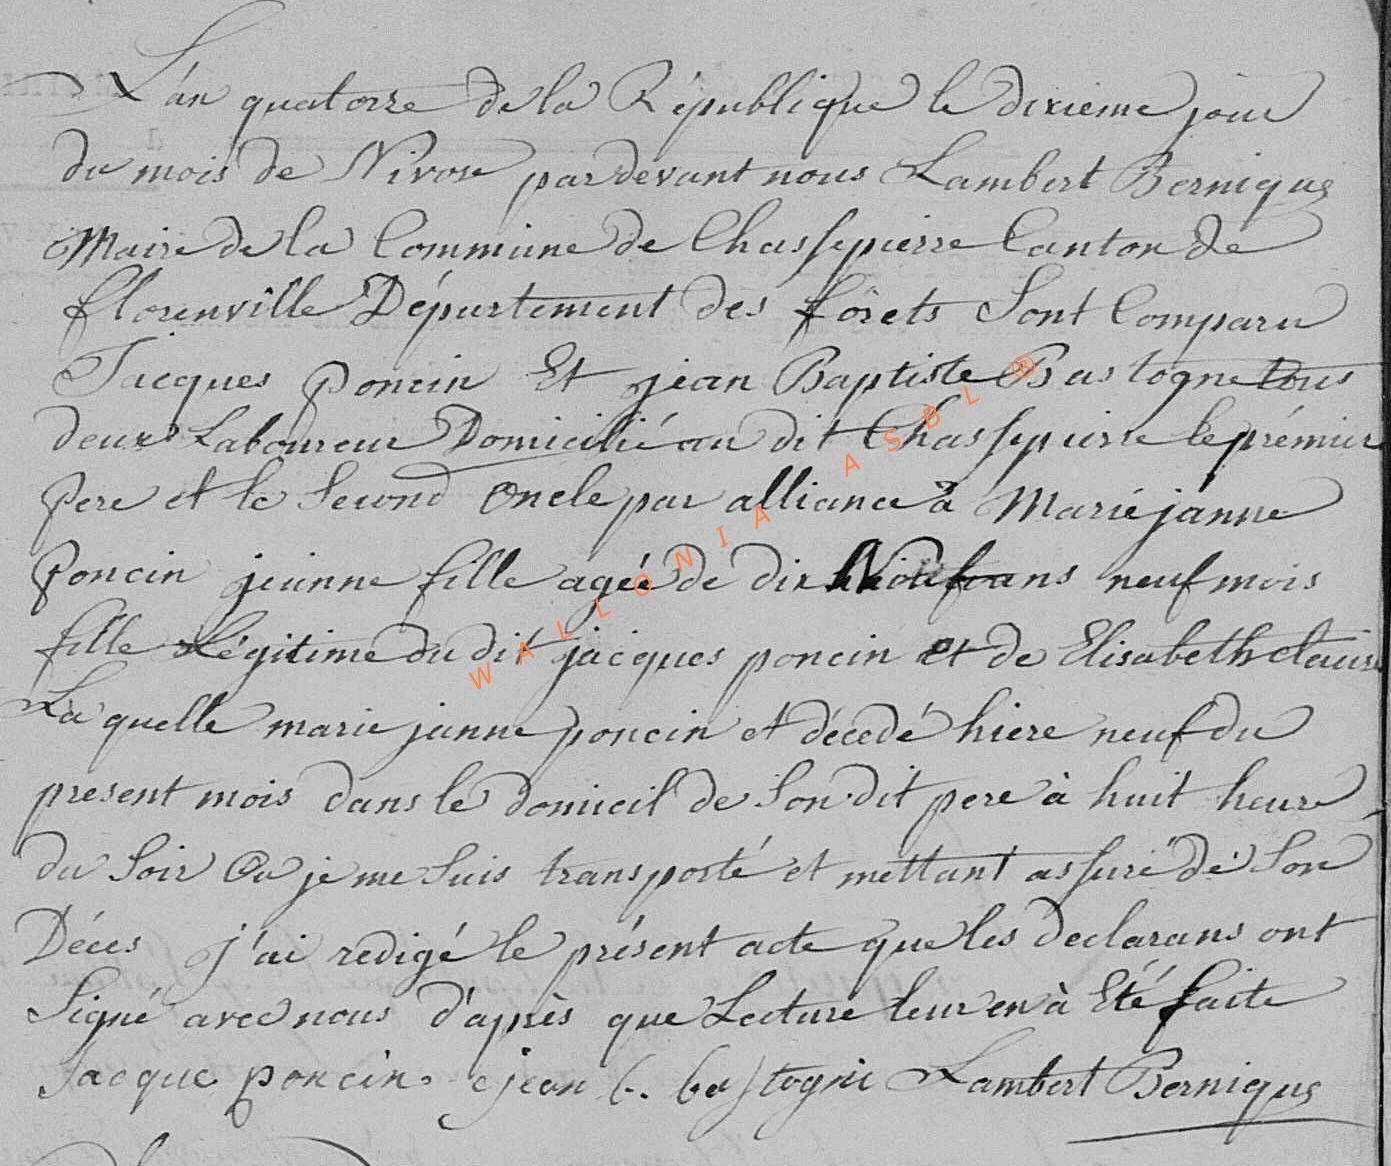 L'an quatorze de la République le dixieme jour
du mois de Nivose pardevant nous Lambert Bernique
Maire de la Commune de Chassepierre Canton de
florenville Département des forets Sont Comparu
Jacques poncin Et jean Baptiste Bastogne tous
deux Laboureur Domicilié au dit Chassepierre le prémier
Pere et le Second Oncle par alliance à Marie janne
poncin jeunne fille agée de dix ans neuf mois
fille Légitime du dit jacques poncin et de Elisabeth
La quelle marie janne poncin et décedé hiere neuf du
present mois dans le domicil de Son dit pere à huit heure
du Soir Ou je me Suis transporté et mettant assuré de Son
Déces j'ai redigé le présent acte que les declarans ont
Signé avec nous d'après que Lecture leur en à Eté faite
Jacque poncin. jean b. bastogne Lambert Bernique
WALLONIA ASBL ®